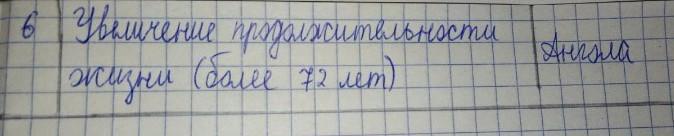 6 Увеличение продолжительности Ангола
жизни (более 72 лет)